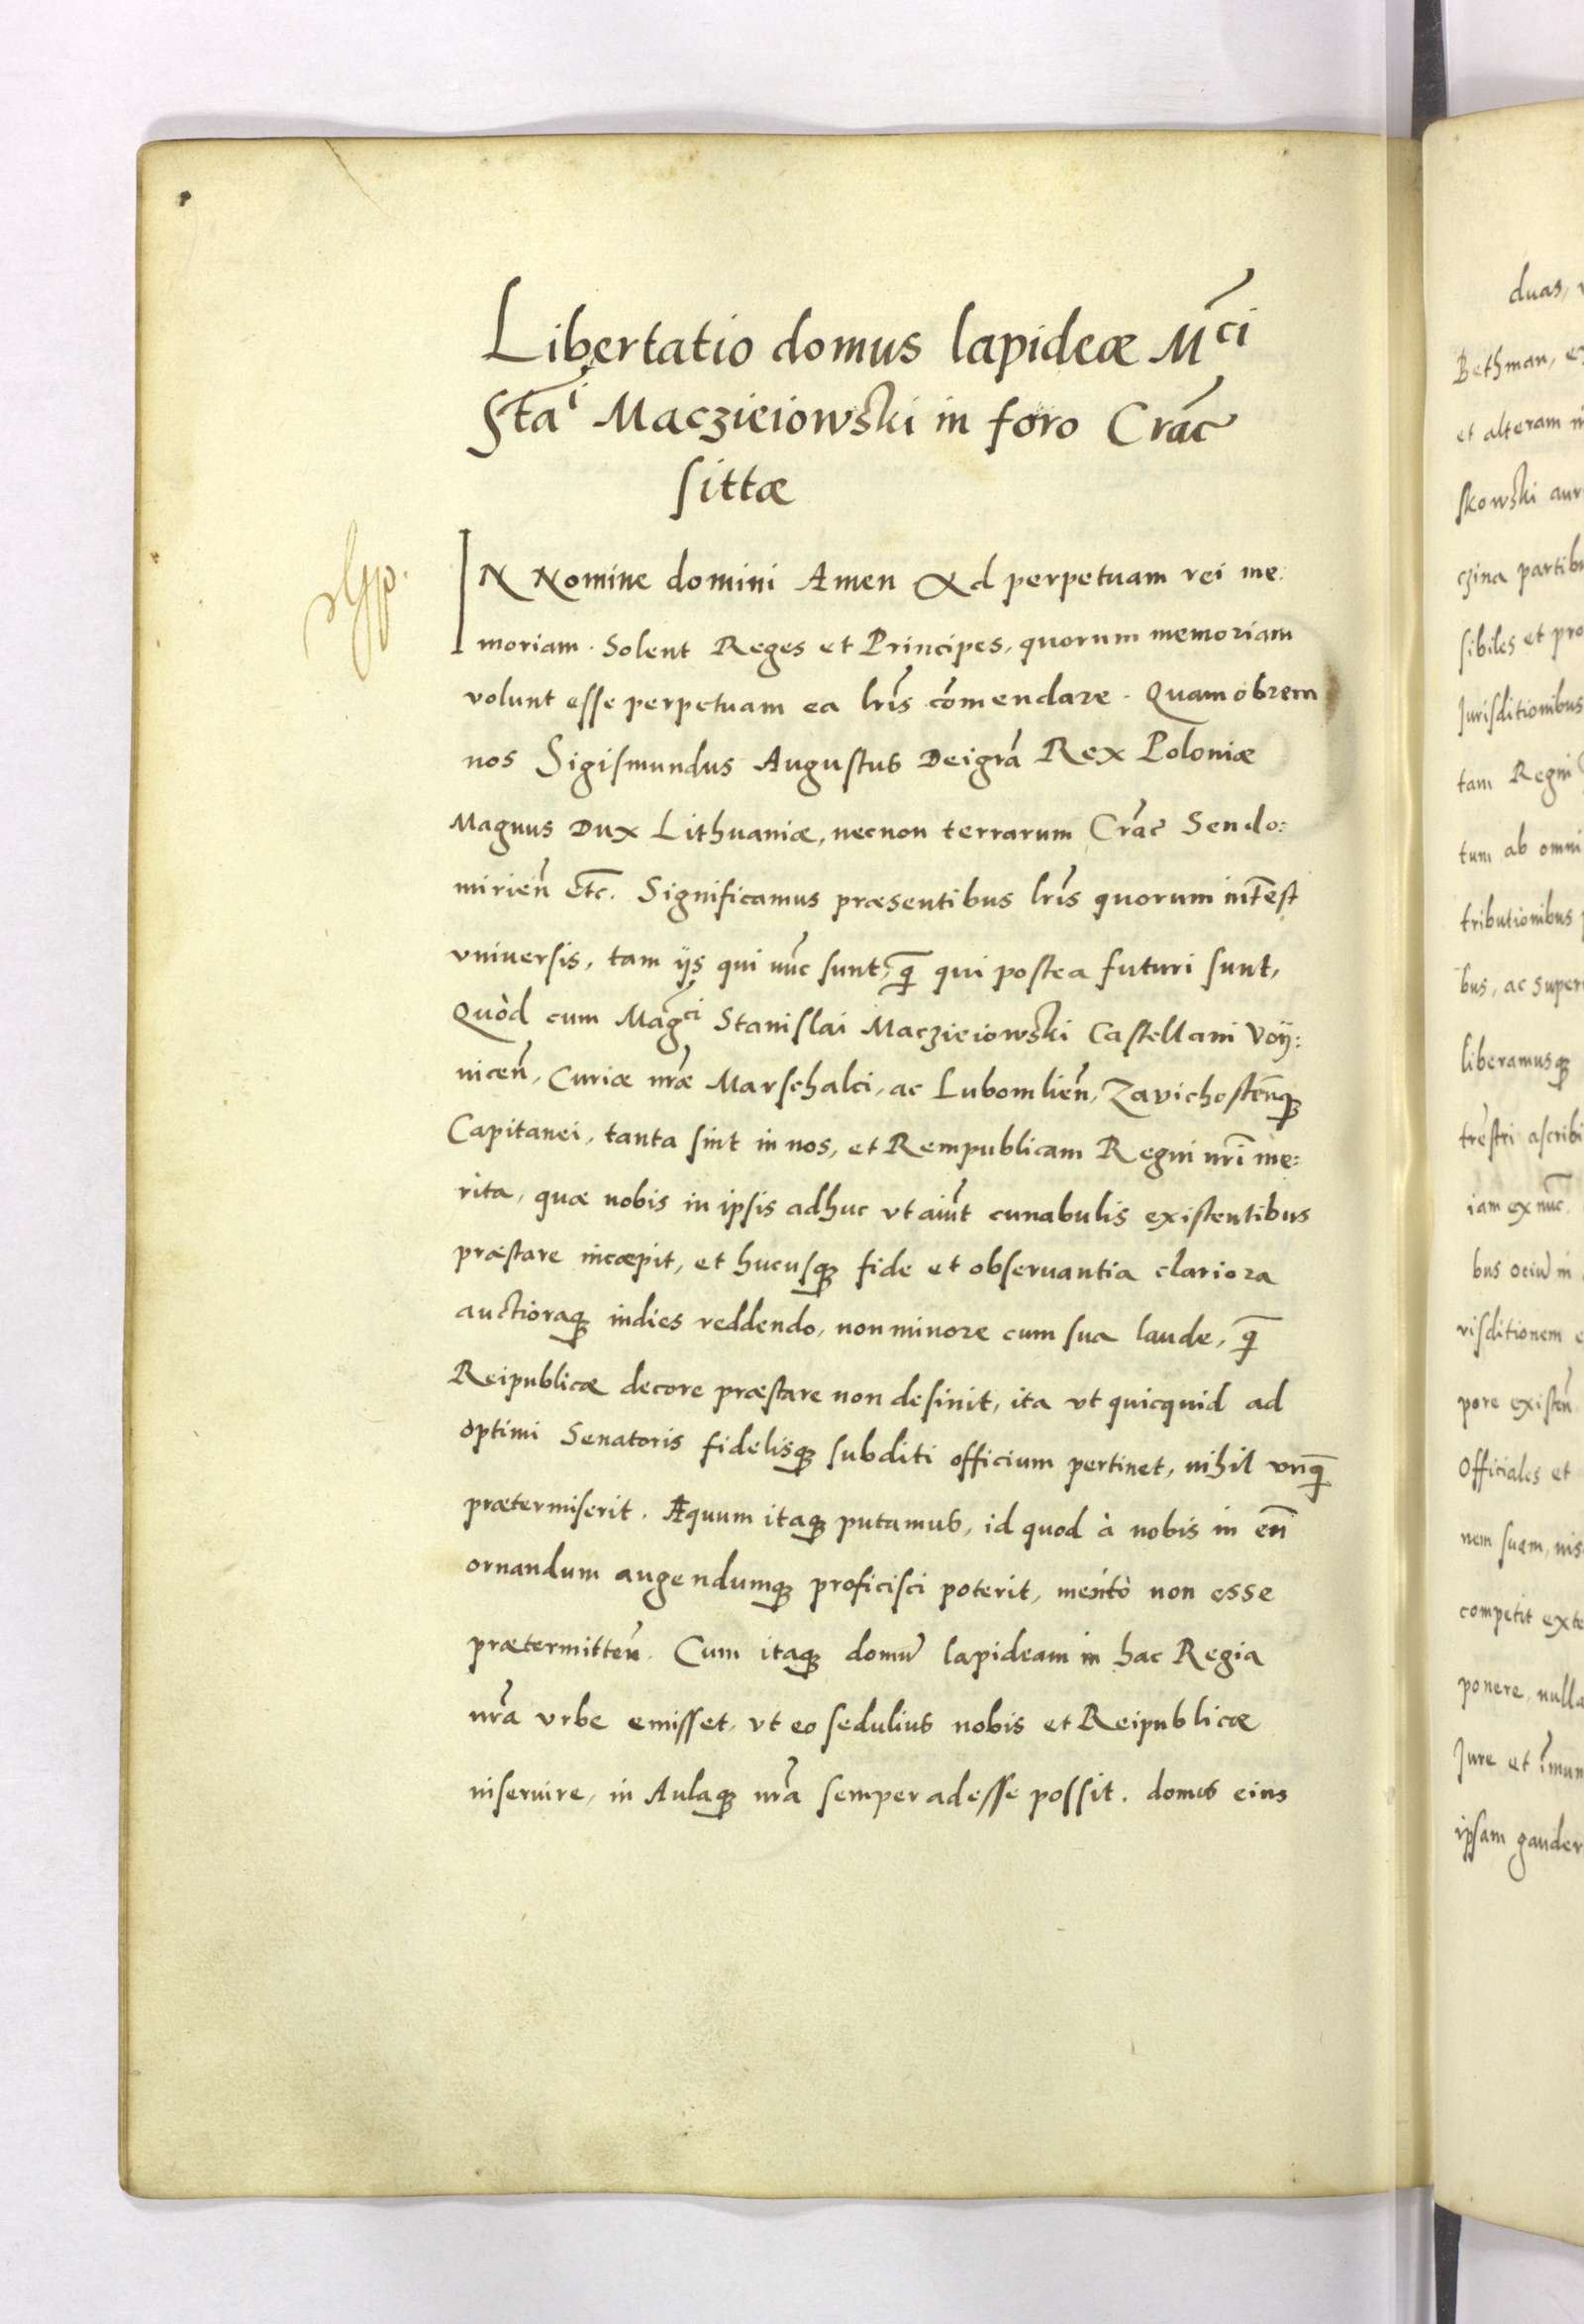 Libertatio domus lapideæ M̃ci
Sta̅i Macziеiowski in foro Crac̃
sittæ
IN Nomine domini Amen Ad perpetuam rei me:
moriam. Solent Reges et Principes, quorum memoriam
volunt esse perpetuam ea lr̃is co̅mendare. Quamobrem
nos Sigismundus Augustus Dei gr̃a Rex Poloniæ
Magnus Dux Lithuaniæ, necnon terrarum Crac̃ Sendo:
mirien̄ etc̃. Significamus præsentibus lr̃is quorum int̃est
vniuersis, tam ijs qui nu̅c sunt, q̃ qui postea futuri sunt,
Quòd cum Mag̃ci Stanislai Maczieiowski Castellani Voÿ:
nicen̄, Curiæ nr̃æ Marschalci, ac Lubomlien̄, Zavichosten̄qꝫ
Capitanei, tanta sint in nos, et Rempublicam Regni nr̃i me:
rita, quæ nobis in ipsis adhuc vt aiu̅t cunabulis existentibus
præstare incæpit, et hucusqꝫ fide et obseruantia clariora
auctioraqꝫ indies reddendo, non minore cum sua laude, q̃
Reipublicæ decore præstare non desinit, ita vt quicquid ad
optimi Senatoris fidelisqꝫ subditi officium pertinet, nihil vnq̃
prætermiserit. Æquum itaqꝫ putamus, id quod à nobis in en̄
ornandum augendumqꝫ proficisci poterit, meritò non esse
prætermitten̄. Cum itaqꝫ domu̅ lapideam in hac Regia
nr̃a vrbe emisset, vt eo sedulius nobis et Reipublicæ
inseruire, in Aulaqꝫ nr̃a semper adesse possit. domus eius
duas,
Bethman,
et alteram
skowski
czina partibu
sibiles et pro
Jurisditionibus
tam Regni
tum ab omni
tributionibus
bus, ac super
liberamusqꝫ
tr̃estri ascribi
iam ex nu̅c
bus ociu̅ in
risditionem
pore existen̄
Officiales et
nem suam, nis
competit exte
ponere, nulla
Jure et i̅mun
ipsam gauder